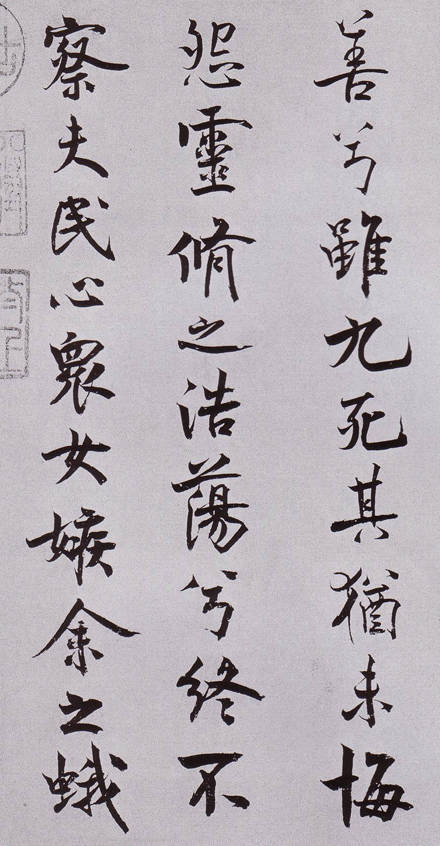 善兮雖九死其猶未悔
怨靈脩之浩蕩兮終不
察夫民心衆女嫉余之蛾